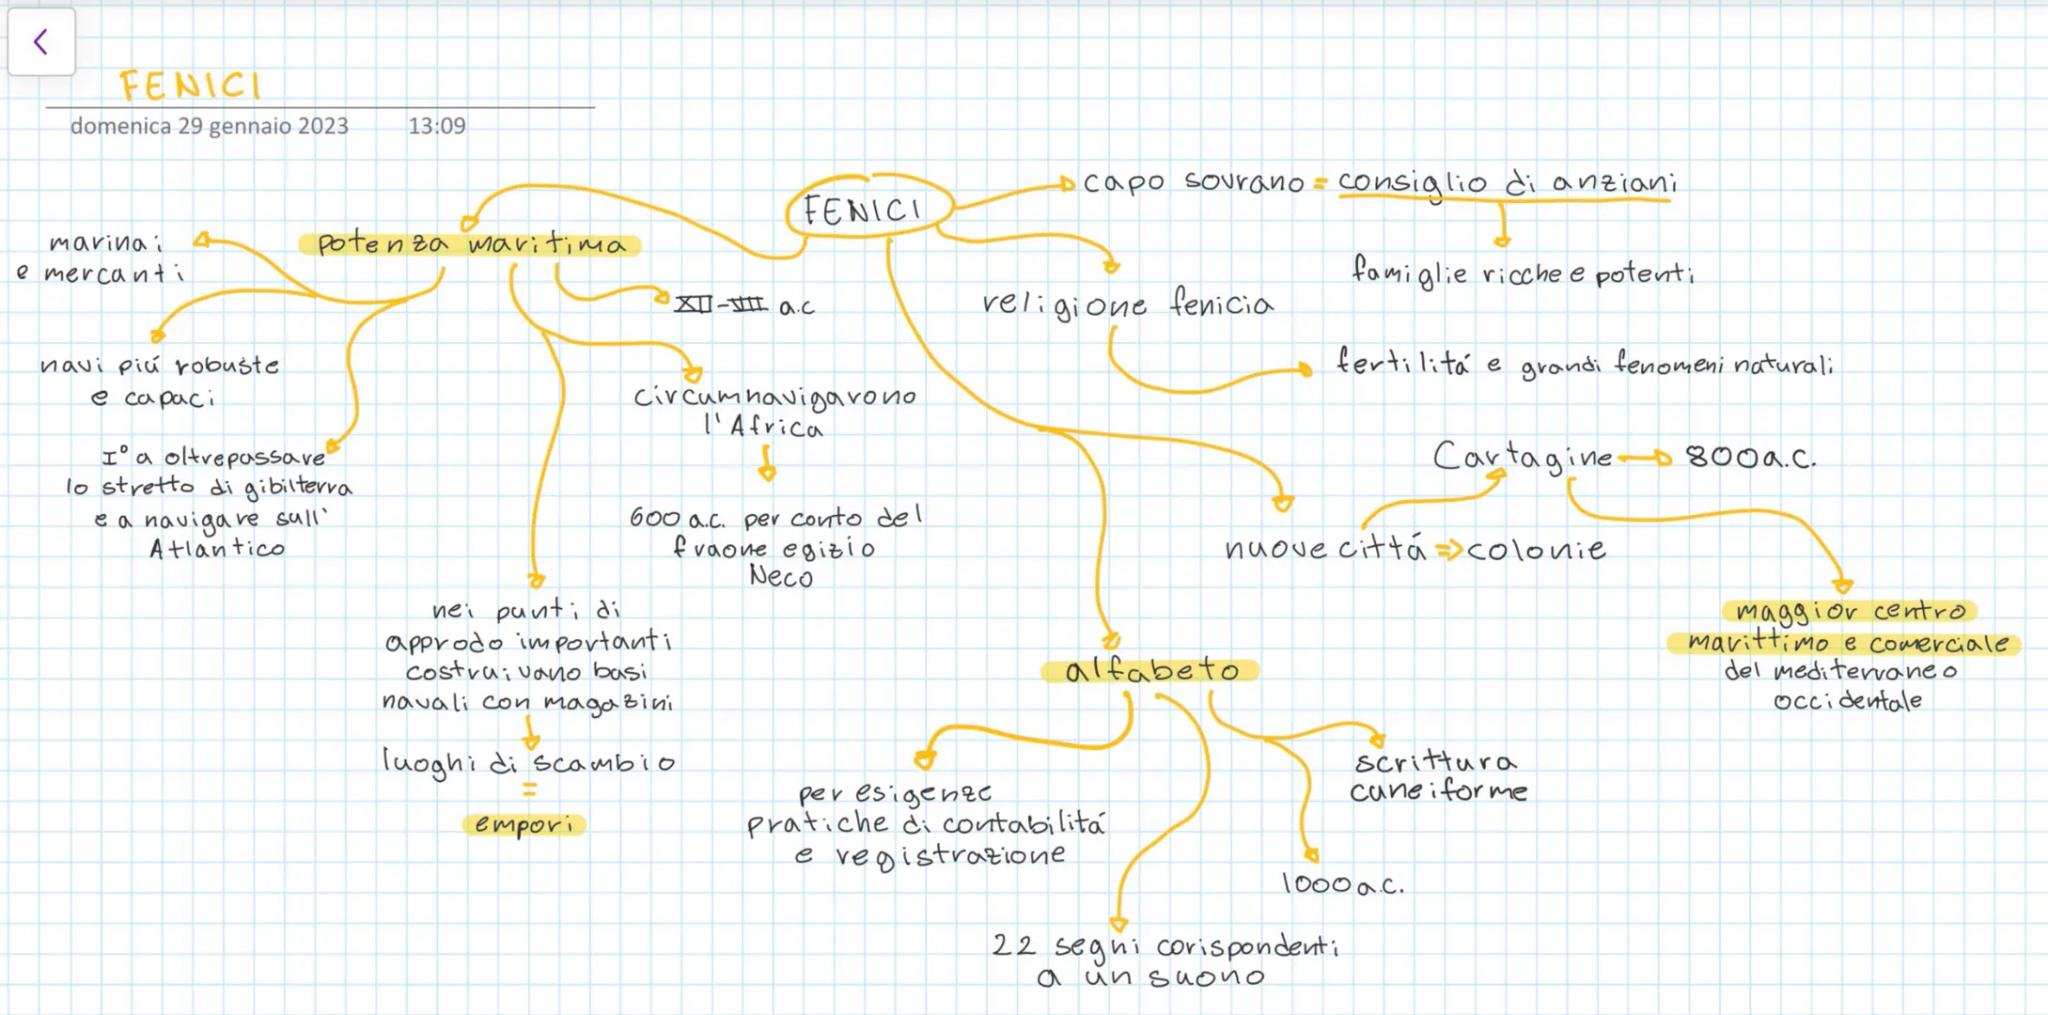 FENICI
domenica 29 gennaio 2023 13:09
FENICI
capo sovrano = consiglio di anziani
famiglie ricche e potenti
religione fenicia
fertilitá e grandi fenomeni naturali
potenza maritima
marinai
e mercanti
navi piú robuste
e capaci
I° a oltrepassare
lo stretto di gibilterra
e a navigare sull'
Atlantico
XII-VIII a.c
circumnavigarono
l'Africa
600 a.c. per conto del
fraone egizio
Neco
nei punti di
approdo importanti
costruivano basi
navali con magazini
luoghi di scambio
=
empori
nuove cittá => colonie
Cartagine 800 a.c.
maggior centro
marittimo e comerciale
del mediterraneo
occidentale
alfabeto
per esigenze
pratiche di contabilitá
e registrazione
22 segni corispondenti
a un suono
1000 a.c.
scrittura
cuneiforme